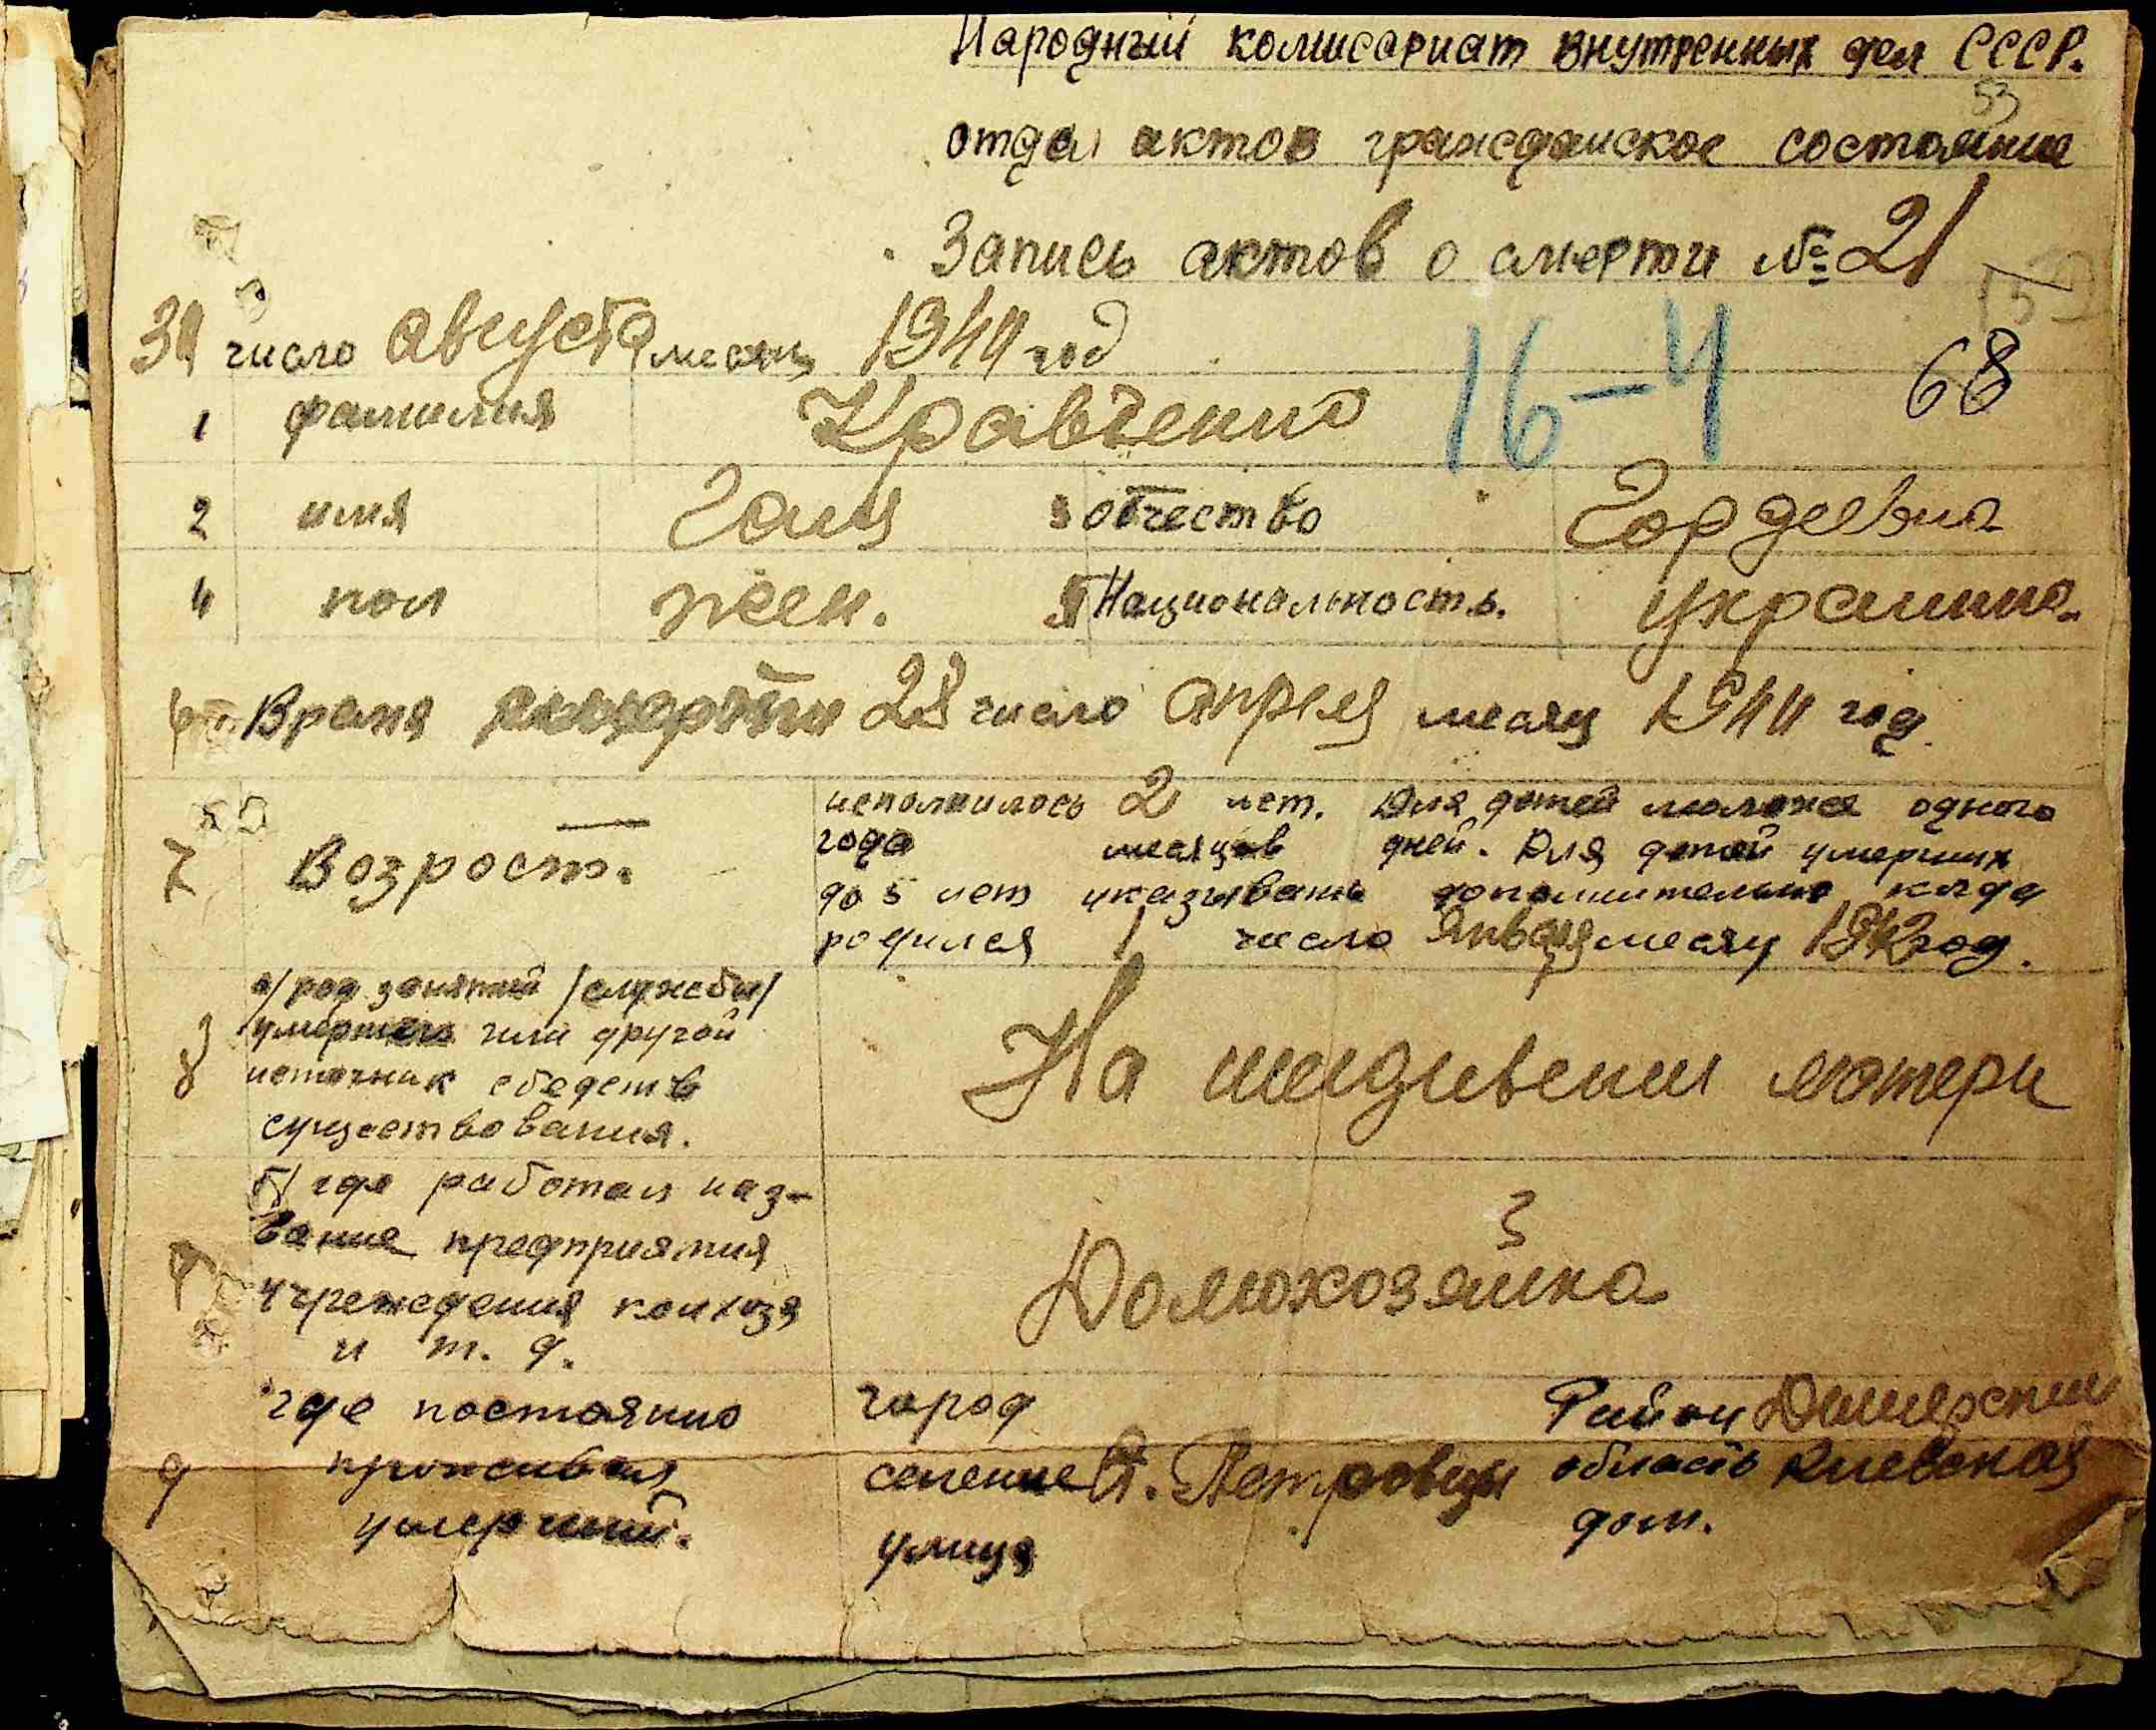 Народный комисариат внутренных дел СССР.
53
отдел актов гражданское состояние
Запись актов о смерти № 21
число августа месяц 1944 год
16-4
68
1 фамилия Кравченко
2 имя Галя 3 отчество Гордеевна
4 пол жен. 5 Национальность. украинка
6 Время 28 число апреля месяц 1944 год.
7 Возрост.
исполнилось 2 лет. Для детей моложе одного
года месяцов дней. Для детей умерших
до 5 лет указывать дополнительно кагда
родился 1 число января месяц 1942 год.
8 а/ род занятий /службы/
умершего или другой
источник средств
существования.
На иждивении матери
б/ где работал наз-
вание предприятия
учреждения колхоза
и т. д.
Домохозяйка
9 где постоянно
проживал
умерший.
город Район Дымерский
селение Ст. Петровцы область Киевская
улица дом.